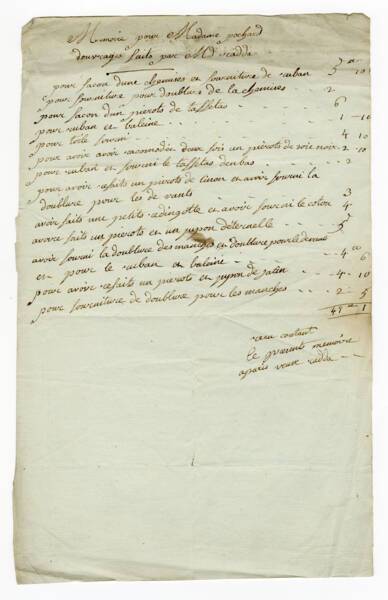 Memoire pour Madame pochard
douvrages faits par Md radda
pour facon dune chemises et fourniture de ruban 5 # 10
pour fourniture pour doublures de la chemises 2
pour facon dun pierots de taffetas 6
pour ruban et baleine 1 - 10
pour toile fourni 4 10
pour avoir avoir racomodér deux fois un pierots de soie noir 2 - 10
pour ruban et fourni le taffetas den bas 2
pour avoir refaits un pierots de linon et avoir fourni la
doublure pour les de vants 3
avoir faits une petite redingotte et avoir fourni le coton 4
avoir faits un pierots et un jupon deternelle 5
avoir fourni la doublure des manches et doublure pour le
et pour le ruban et baleine 6
pour avoir refaits un pierots et jupon de satin 4 - 10
pour fourniture de doublure pour les manches 2 - 5
47 # 1
recu contant
le present memoire
aparis veuve radda